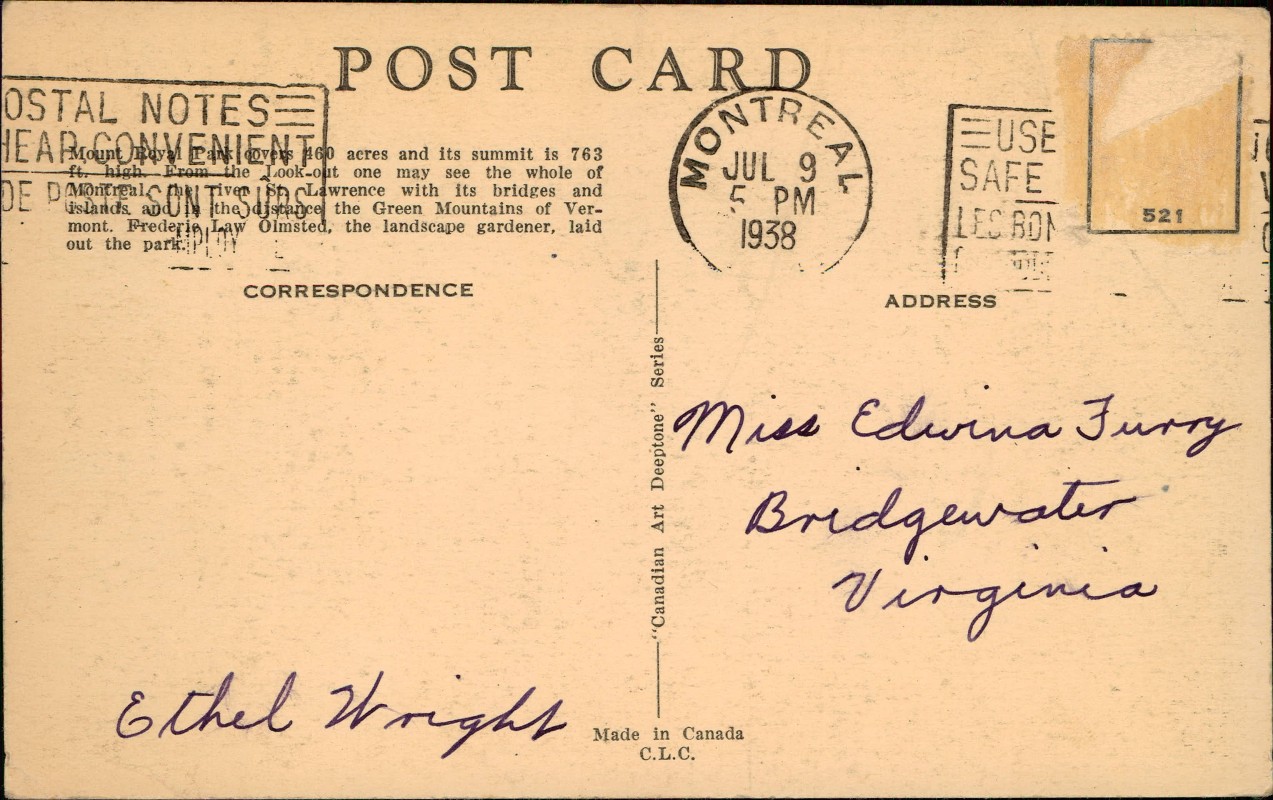 POST CARD
OSTAL NOTES
HEAP CONVENIENT
DE POSTE SONT SÛRS
Mount Royal Park covers 460 acres and its summit is 763
ft. high. From the Look-out one may see the whole of
Montreal, the river St. Lawrence with its bridges and
islands and in the distance the Green Mountains of Ver-
mont. Frederic Law Olmsted, the landscape gardener, laid
out the park.
MONTREAL
JUL 9
5 PM
1938
USE
SAFE
LES BON
521
CORRESPONDENCE
ADDRESS
"Canadian Art Deeptone" Series
Miss Edwina Furry
Bridgewater
Virginia
Ethel Wright
Made in Canada
C.L.C.